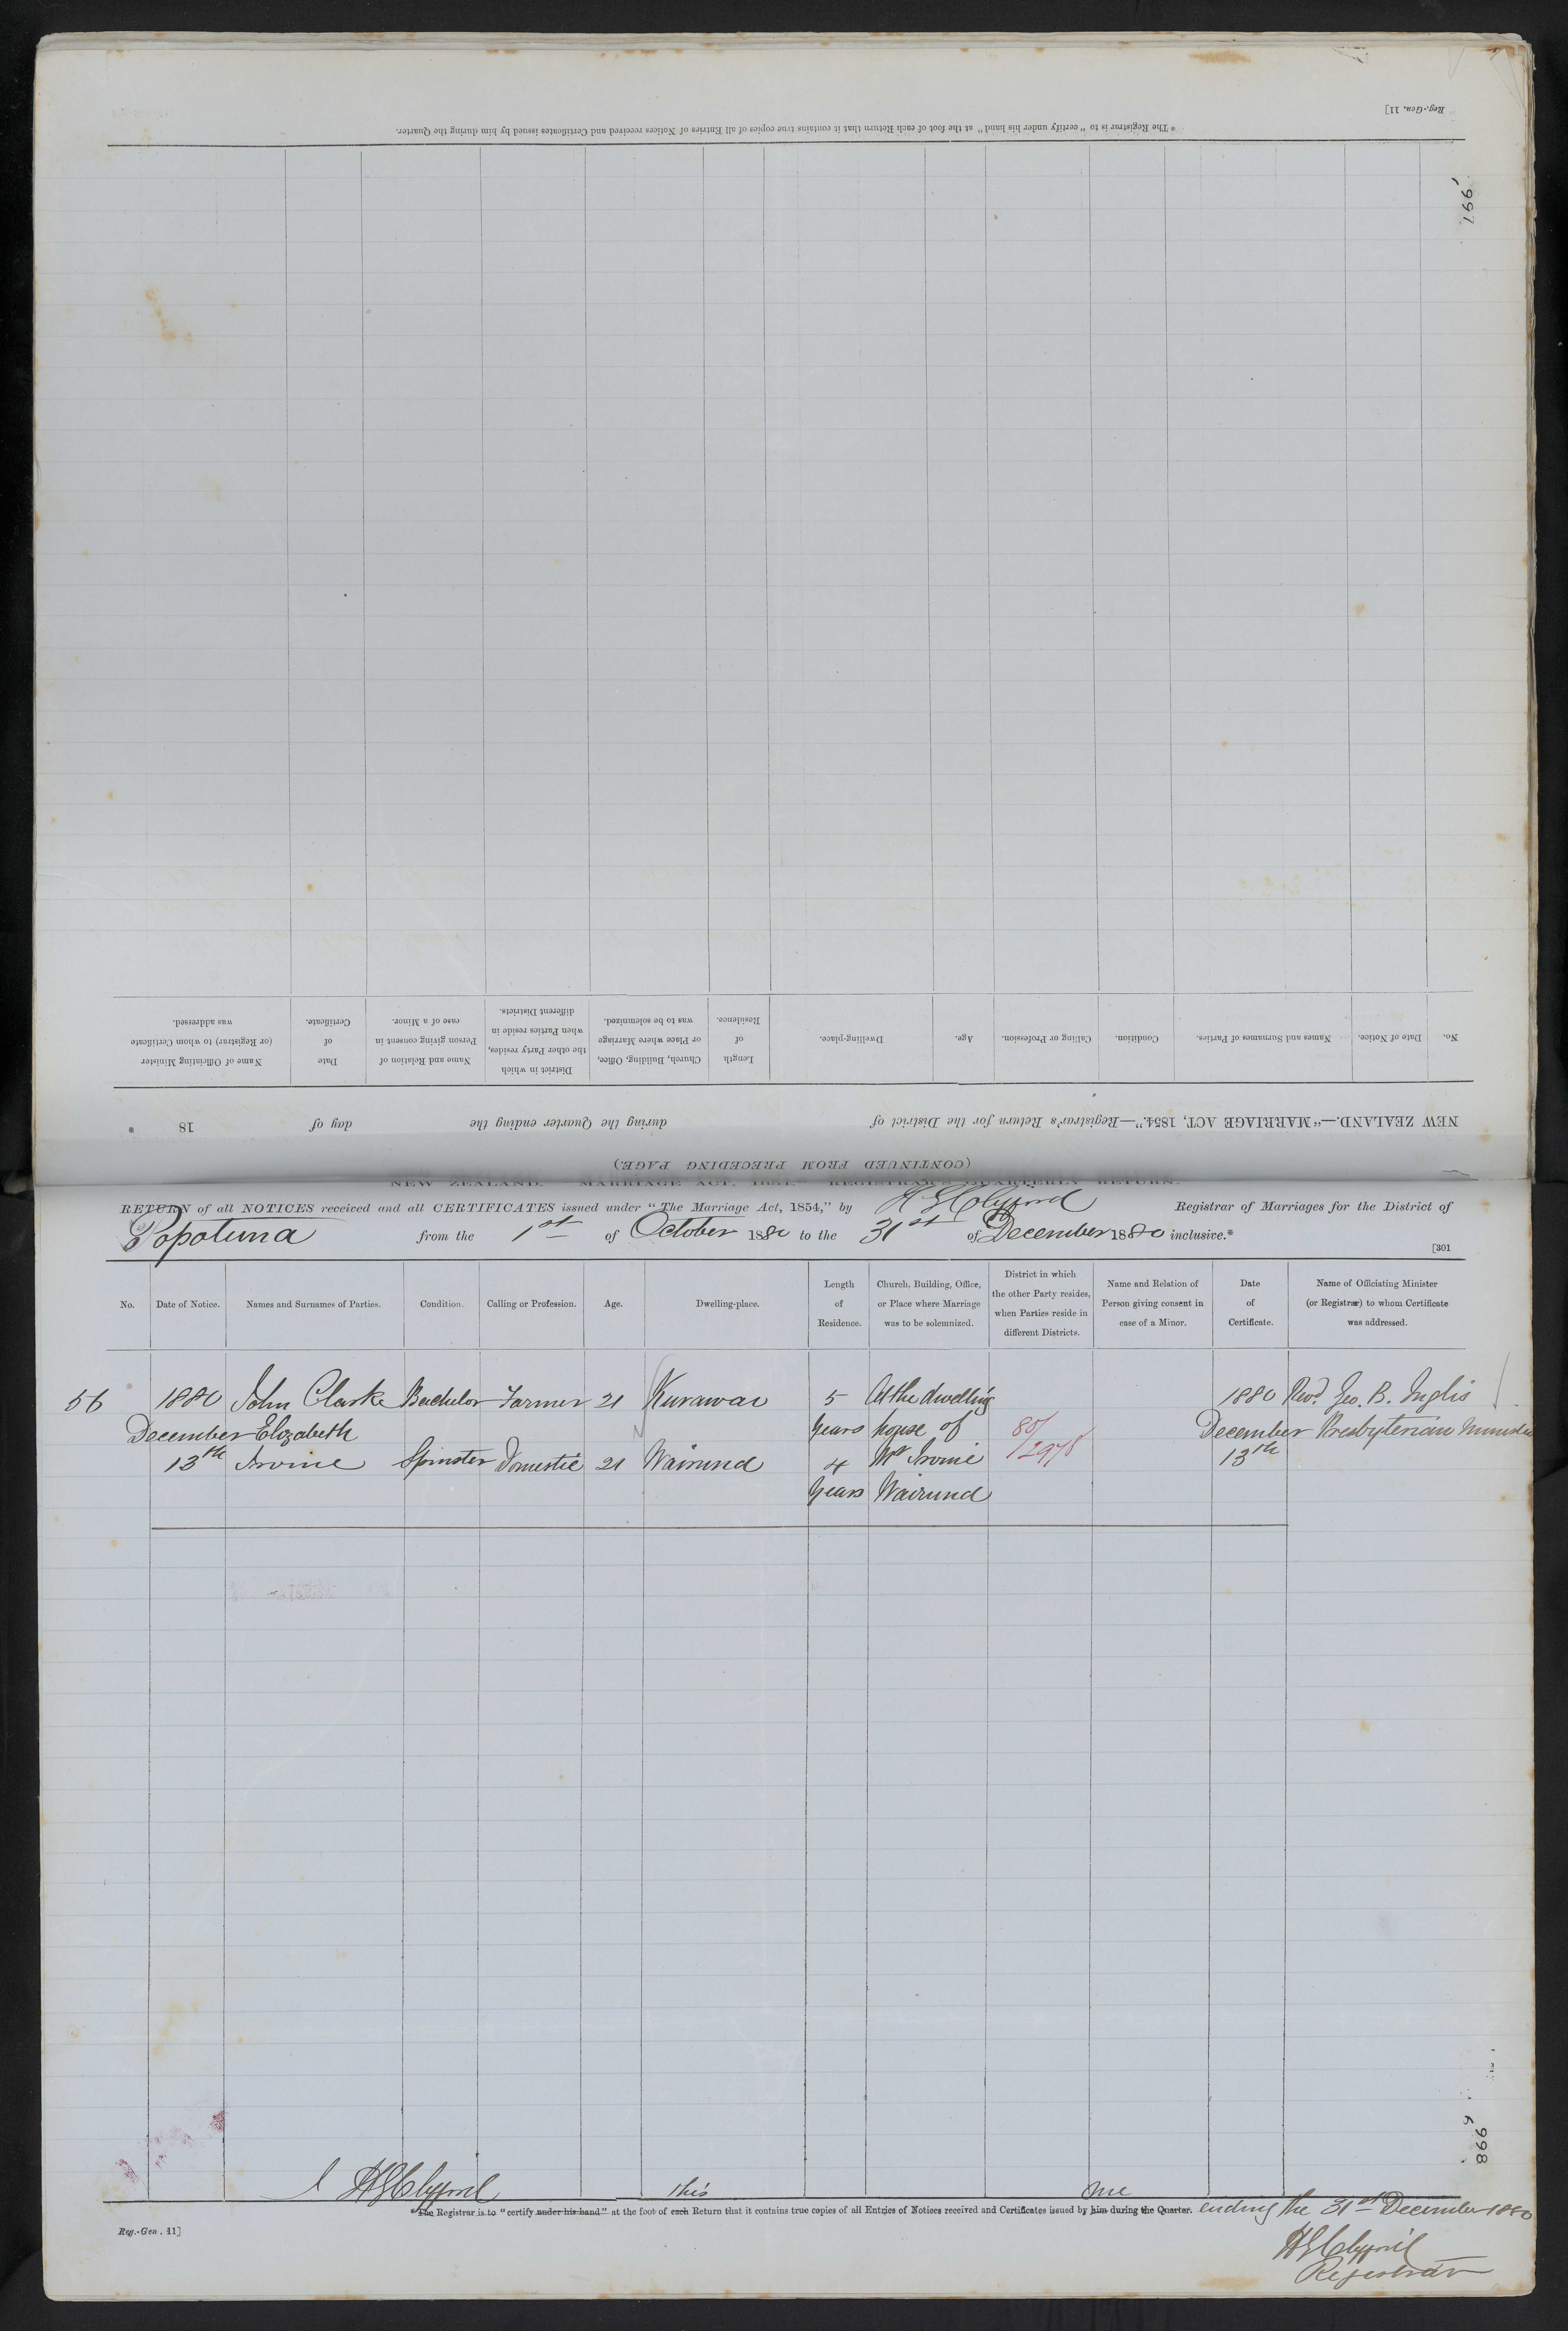 Reg.-Gen. 11]
* The Registrar is to "certify under his hand" at the foot of each Return that it contains true copies of all Entries of Notices received and Certificates issued by him during the Quarter.
997
No. Date of Notice. Names and Surnames of Parties. Condition. Calling or Profession. Age. Dwelling-place. Length of Residence. Church, Building, Office, or Place where Marriage was to be solemnized. District in which the other Party resides, when Parties reside in different Districts. Name and Relation of Person giving consent in case of a Minor. Date of Certificate. Name of Officiating Minister (or Registrar) to whom Certificate was addressed.
NEW ZEALAND.—"MARRIAGE ACT, 1854."—Registrar's Return for the District of during the Quarter ending the day of 18
(CONTINUED FROM PRECEDING PAGE.)
NEW ZEALAND.—"MARRIAGE ACT, 1854."—REGISTRAR'S QUARTERLY RETURN.
RETURN of all NOTICES received and all CERTIFICATES issued under "The Marriage Act, 1854," by Registrar of Marriages for the District of
Popotuna from the 1st of October 1880 to the 31st of December 1880 inclusive.*
[301
No. Date of Notice. Names and Surnames of Parties. Condition. Calling or Profession. Age. Dwelling-place. Length of Residence. Church, Building, Office, or Place where Marriage was to be solemnized. District in which the other Party resides, when Parties reside in different Districts. Name and Relation of Person giving consent in case of a Minor. Date of Certificate. Name of Officiating Minister (or Registrar) to whom Certificate was addressed.
56 1880 John Clarke Bachelor Farmer 21 Kurawai 5 At the dwelling 1880 Revd. Geo. B. Inglis
December Elizabeth Years house of 80/ December Presbyterian Minister
13th Irvine Spinster Domestic 21 Wairuna 4 Mr Irvine 2978 13th
Years Wairuna
998
I this me
The Registrar is to "certify under his hand" at the foot of each Return that it contains true copies of all Entries of Notices received and Certificates issued by him during the Quarter. ending the 31st December 1880
Reg.-Gen. 11]
Registrar